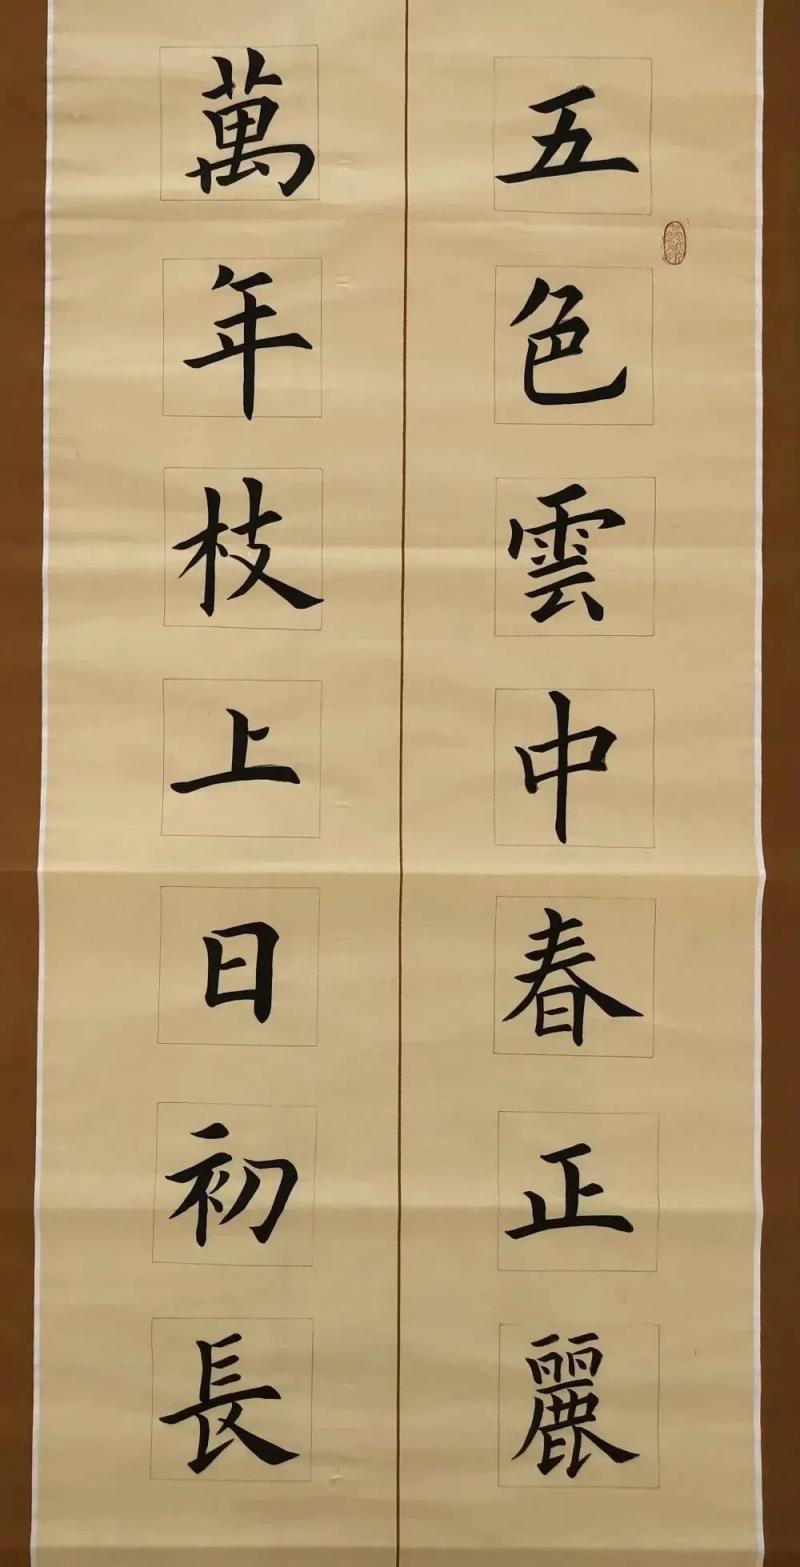 五色雲中春正麗
萬年枝上日初長